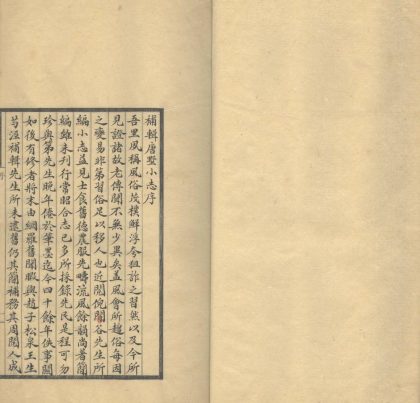 補輯唐墅小志序
吾里夙稱風俗茂樸鮮浮夸狙詐之習然以今所
見證諸故老傳聞不無少異矣蓋風會所趨俗每因
之變易非第習俗足以移人也近閱倪閬谷先生所
編小志益見士食舊德農服先疇流風餘韻尚著簡
編雖未刊行常昭合志已多所採錄先民是程可勿
珍與第先生晚年倦於筆墨迄今四十餘年佚事闕
如後有修者將末由網羅舊聞職與趙子松泉王生
芶涇補輯先生所未逮舊仍其簡補務其周閱人成
序